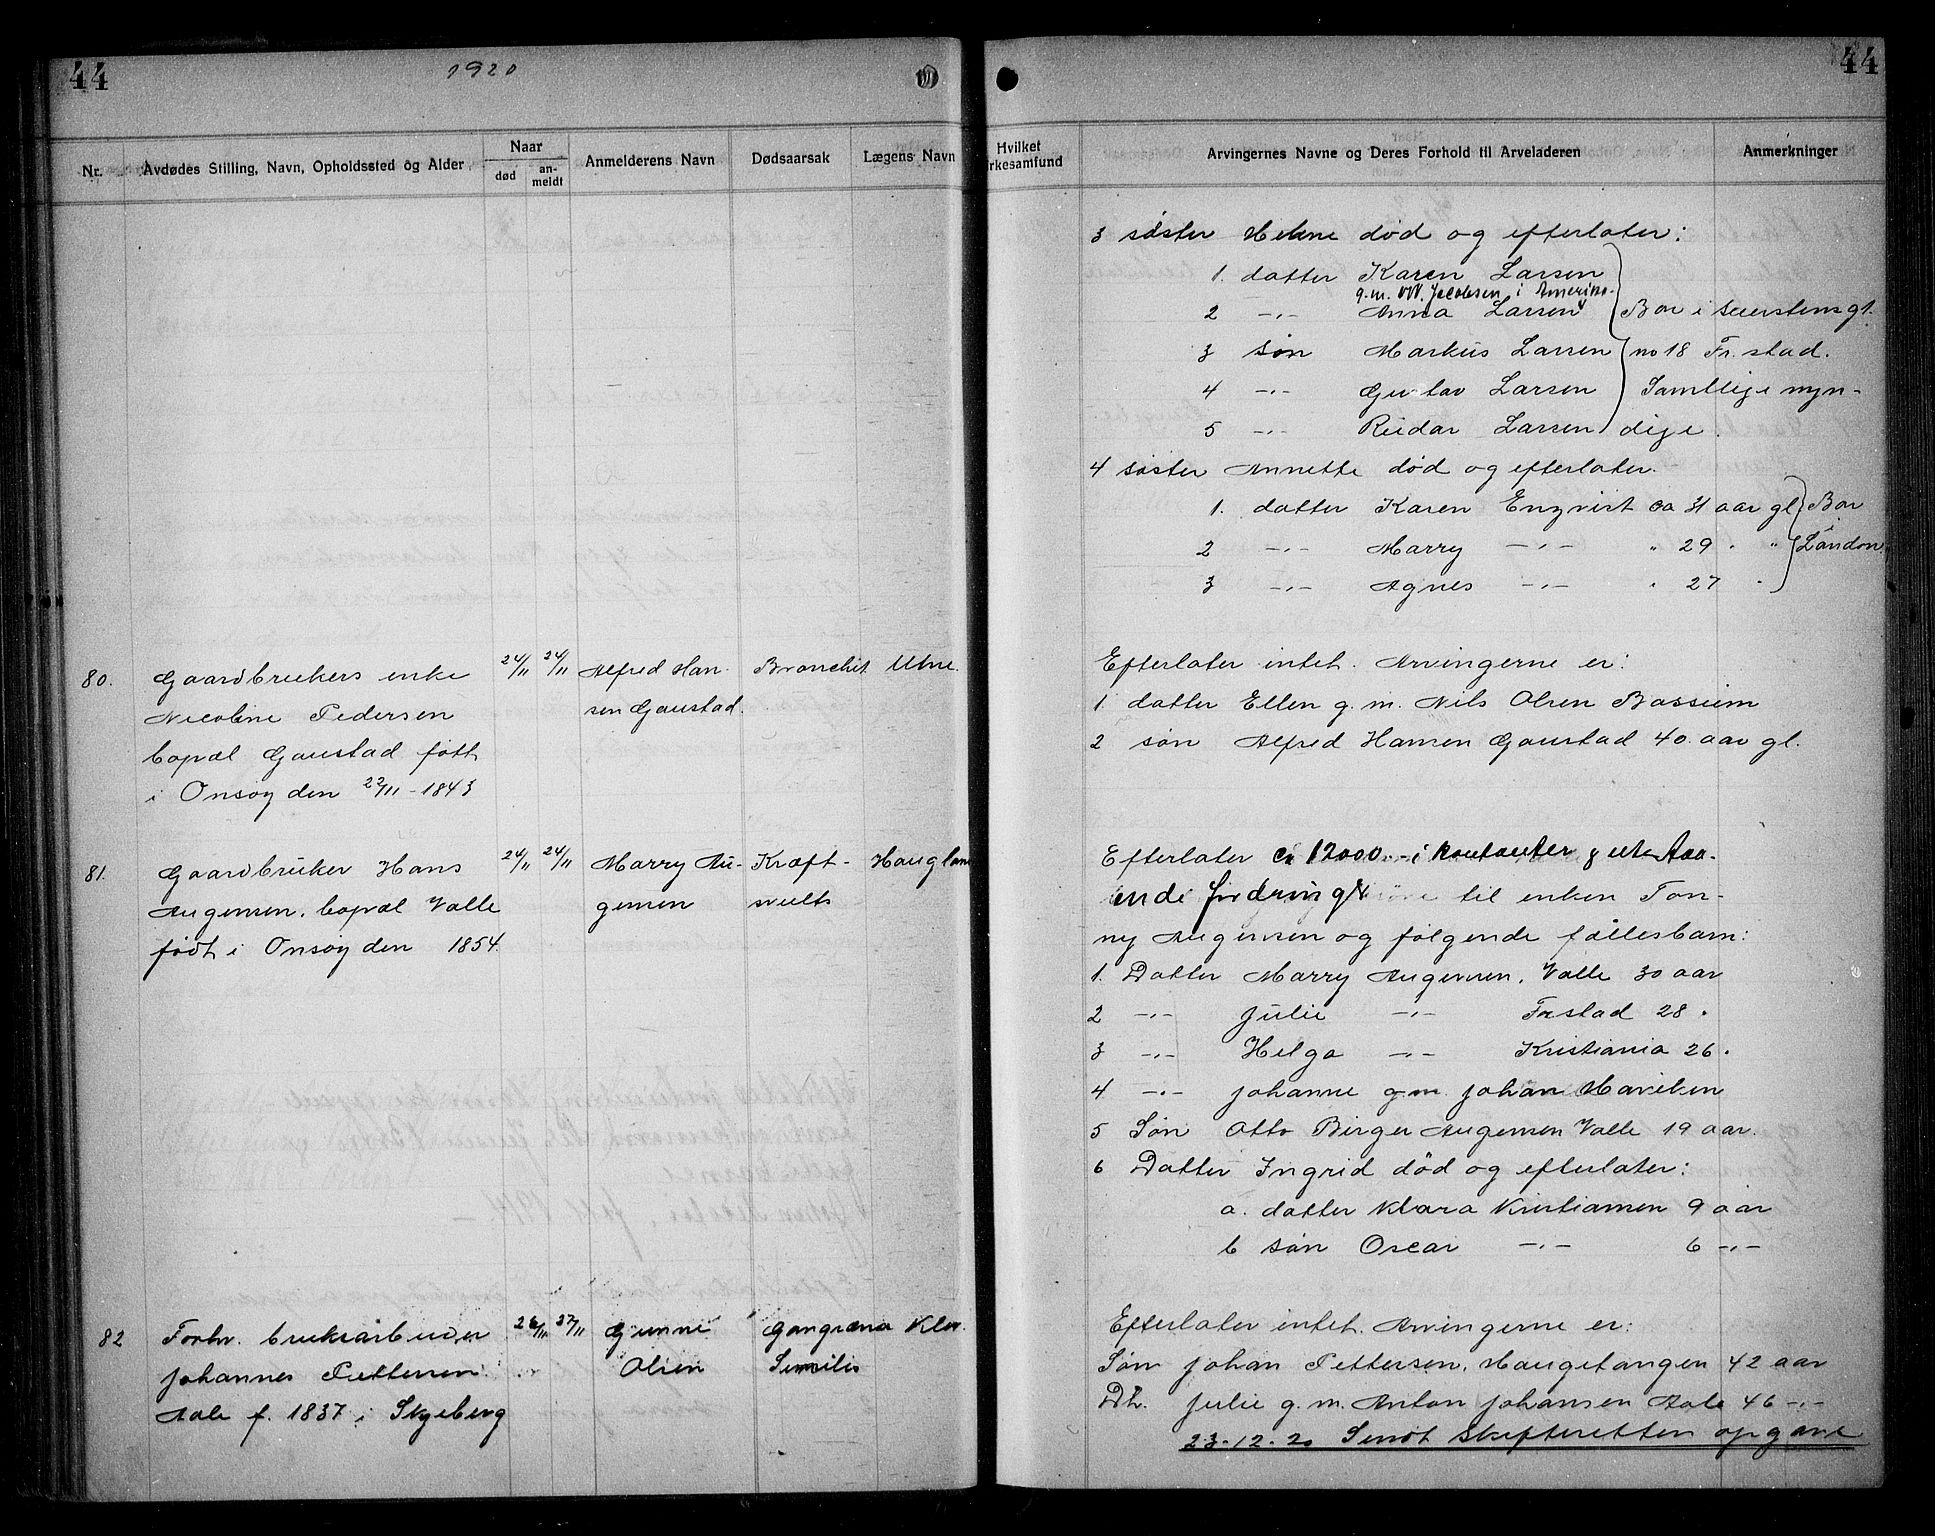 44
1920
Nr.
Avdødes Stilling, Navn, Opholdssted og Alder
Naar
død
an-
meldt
Anmelderens Navn
Dødsaarsak
Lægens Navn
80.
Gaardbrukers enke
Nicoline Pedersen
bopæl Gaustad født
i Onsøy den 22/11-1843
24/11
24/11
Alfred Han-
sen Gaustad.
Bronchit
Utne.
81.
Gaardbruker Hans
Augensen, bopæl Valle
født i Onsøy den 1854.
24/11
24/11
Marry Au-
gensen
Kræft-
svulst
Haugland
82
Forhv. bruksarbeider
Johannes Pettersen
Aale f. 1837 i Skjeberg
26/11
27/11
Gunne
Olsen
Gangræna
Senilis
44
Hvilket
rkesamfund
Arvingernes Navne og Deres Forhold til Arveladeren
Anmerkninger
3 søster Helene død og efterlater:
1. datter Karen Larsen
g.m. W. Jacobsen, i Amerika.
2 -"- Anna Larsen
Bor i Seierstensgt.
3 søn Markus Larsen
no 18 Fr.stad.
4 -"- Gustav Larsen
Samtlige myn-
5 -"- Reidar Larsen
dige.
4 søster Annette død og efterlater.
1. datter Karen Enqvist ca 31 aar gl.
Bor i
2 -"- Marry -"- " 29 " "
London.
3 -"- Agnes -"- " 27 "
Efterlater intet. Arvingerne er:
1 datter Ellen g.m. Nils Olsen Bossum
2 søn Alfred Hansen Gaustad 40. aar gl.
Efterlater ca 12000.- i kontanter & utestaa-
ende fordring til enken Ton-
ny Augensen og følgende fællesbarn:
1. Datter Marry Augensen, Valle 30 aar
2 -"- Julie -"- Frstad 28 "
3 -"- Helga -"- Kristiania 26 "
4 -"- Johanne g.m. Johan Haviken
5 Søn Otto Birger Augensen Valle 19 aar.
6 Datter Ingrid død og efterlater:
a. datter Klara Kristiansen 9 aar
b søn Oscar -"- 6 -"-
Efterlater intet. Arvingerne er:
Søn Johan Pettersen, Haugetangen 42 aar
Dt. Julie g.m. Anton Johansen Aale 46 -"-
23-12-20 Sendt Skifteretten opgave